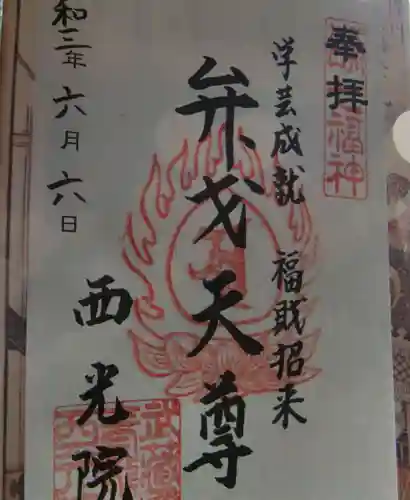 奉拝
学芸成就 福財招来
弁才天尊
西光院
和三年六月六日
福神